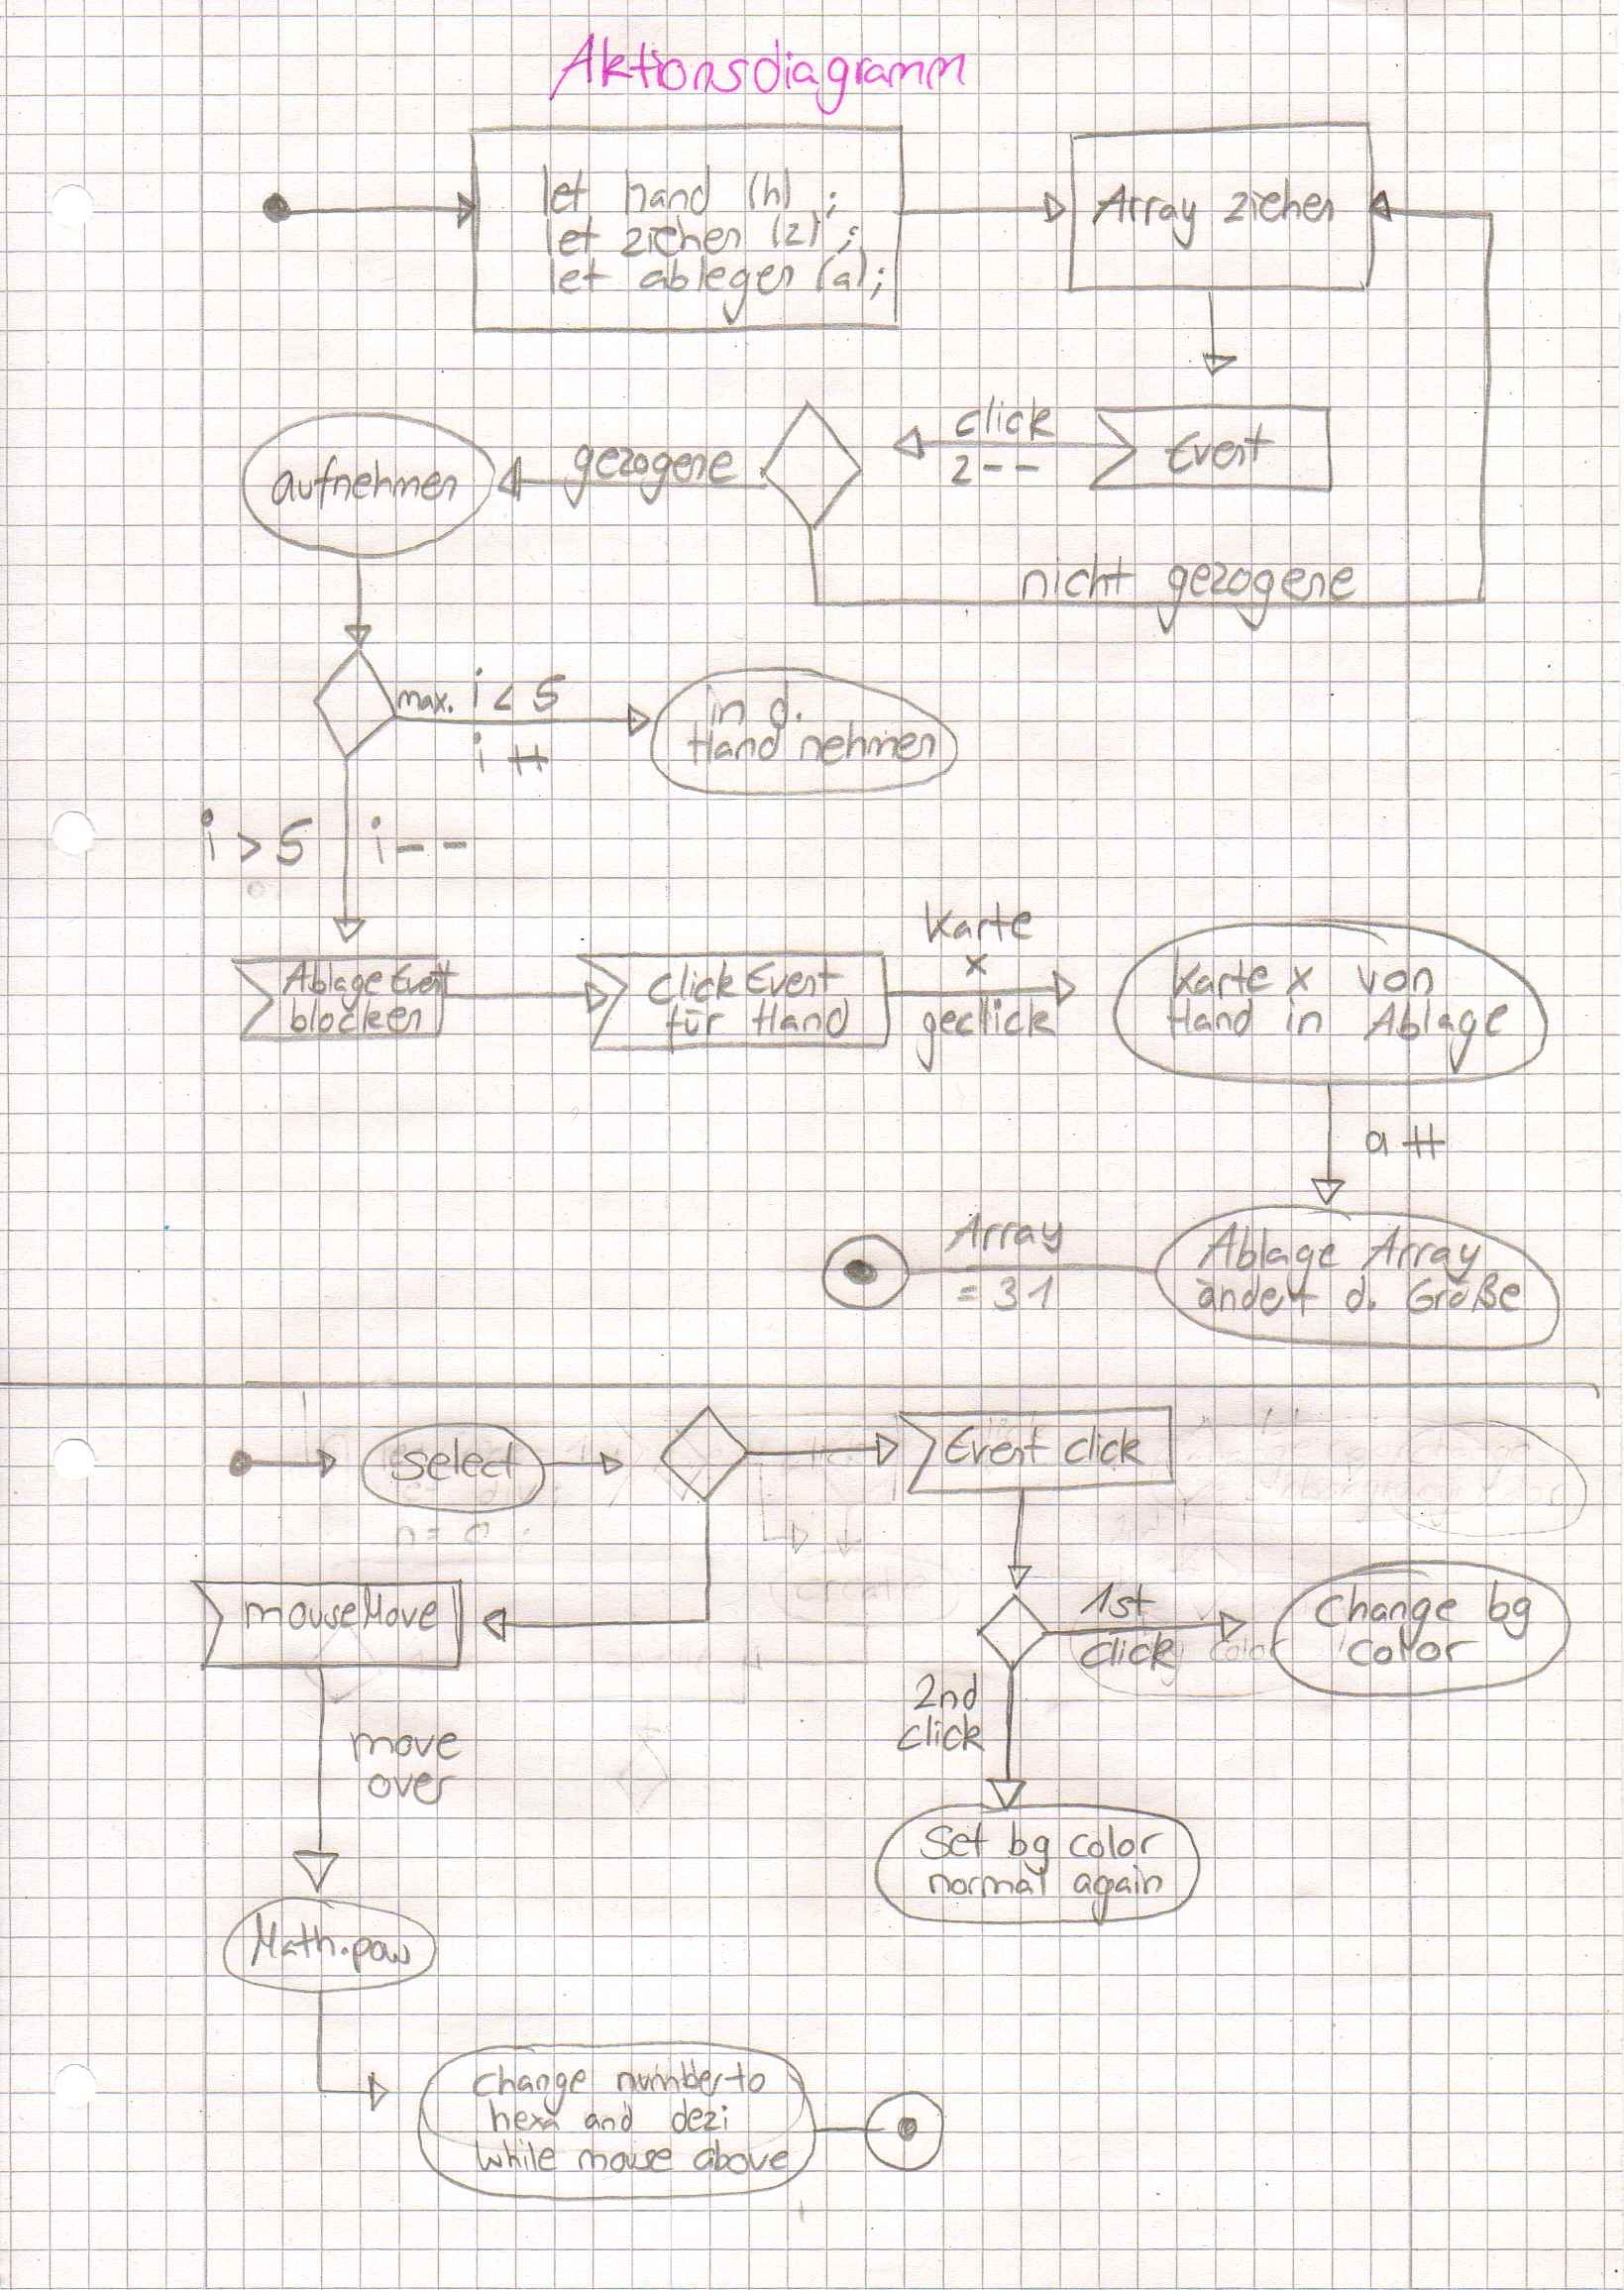 Aktionsdiagramm
let hand (h) ;
let ziehen (z) ;
let ablegen (a);
Array ziehen
click
z--
Event
gezogene
aufnehmen
nicht gezogene
max. i < 5
i ++
in d.
Hand nehmen
i > 5
i--
Ablage Event
blocken
Click Event
für Hand
Karte
x
geclick
Karte x von
Hand in Ablage
a ++
Array
= 31
Ablage Array
ändert d. Größe
select
Event click
n = 0
mouseMove
1st
click
Change bg
color
2nd
click
move
over
Set bg color
normal again
Math.pow
change number to
hexa and dezi
while mouse above